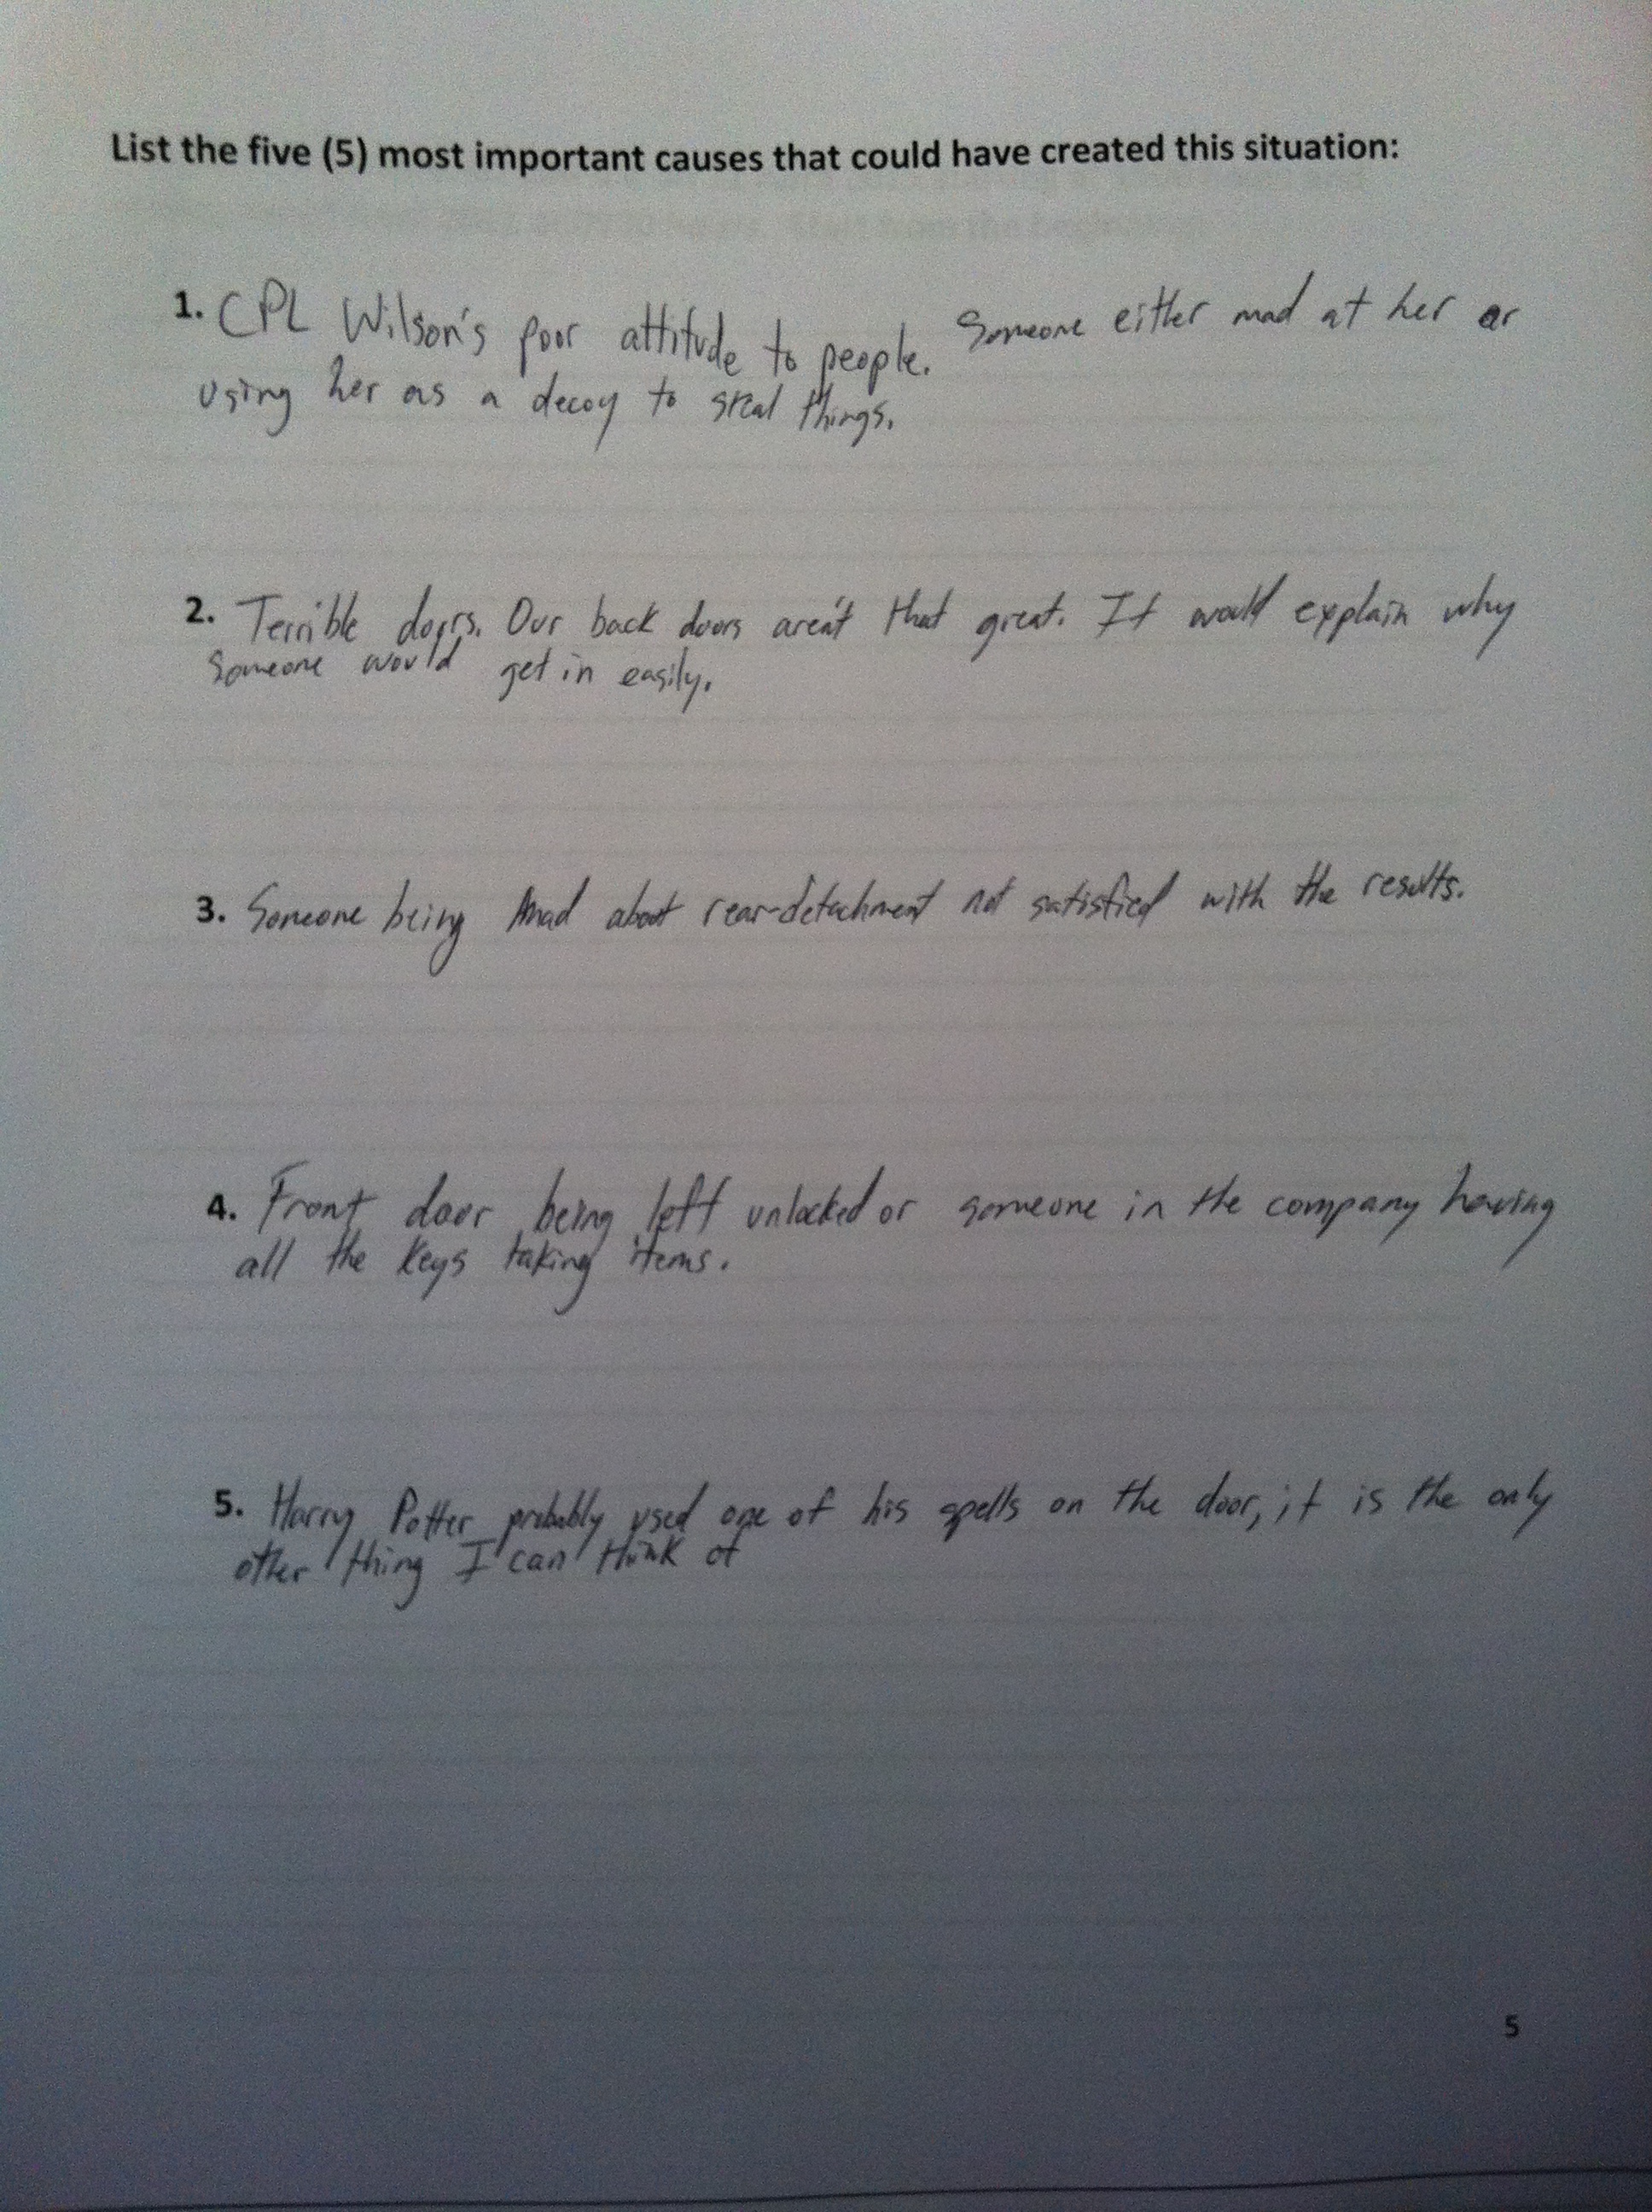 List the five (5) most important causes that could have created this situation:
1. CPL Wilson's poor attitude to people. Someone either mad at her or
using her as a decoy to steal things.
2. Terrible doors. Our back doors aren't that great. It would explain why
someone would get in easily.
3. Someone being mad about rear-detachment not satisfied with the results.
4. Front door being left unlocked or someone in the company having
all the keys taking items.
5. Harry Potter probably used one of his spells on the door, it is the only
other thing I can think of
5